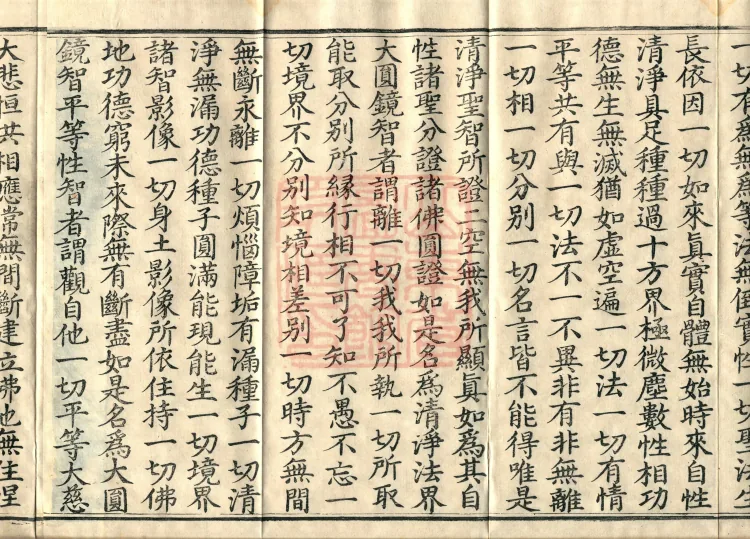 一切有為無為等法無倒實性一切聖法生
長依因一切如來真實自體無始時來自性
清淨具足種種過十方界極微塵數性相功
德無生無滅猶如虛空遍一切法一切有情
平等共有與一切法不一不異非有非無離
一切相一切分別一切名言皆不能得唯是
清淨聖智所證二空無我所顯真如為其自
性諸聖分證諸佛圓證如是名為清淨法界
大圓鏡智者謂離一切我我所執一切所取
能取分別所緣行相不可了知不愚不忘一
切境界不分別知境相差別一切時方無間
無斷永離一切煩惱障垢有漏種子一切清
淨無漏功德種子圓滿能現能生一切境界
諸智影像一切身土影像所依住持一切佛
地功德窮未來際無有斷盡如是名為大圓
鏡智平等性智者謂觀自他一切平等大慈
大悲恒共相應常無間斷建立佛地無住涅